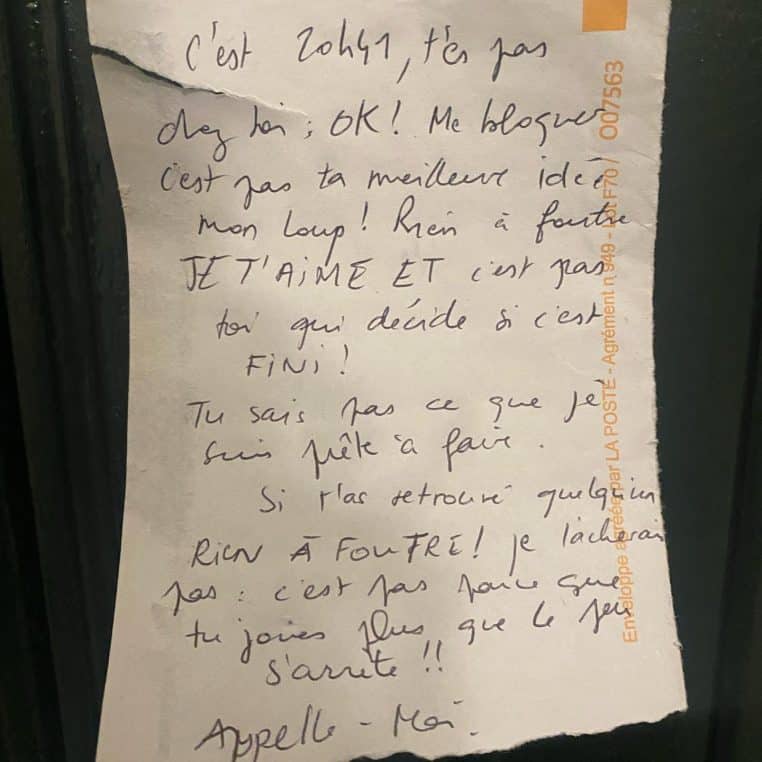 C'est 20h41, t'es pas
chez toi ; OK ! Me bloquer
c'est pas ta meilleure idée
mon loup ! Rien à foutre
JE T'AIME ET c'est pas
toi qui décide si c'est
FINI !
Tu sais pas ce que je
suis prête à faire.
Si t'as retrouvé quelqu'un
RIEN À FOUTRE ! je lâcherai
pas : c'est pas parce que
tu joues plus que le jeu
s'arrête !!
Appelle-Moi.
Enveloppe agréée par LA POSTE - Agrément n°949 - Lot F70 / 007563